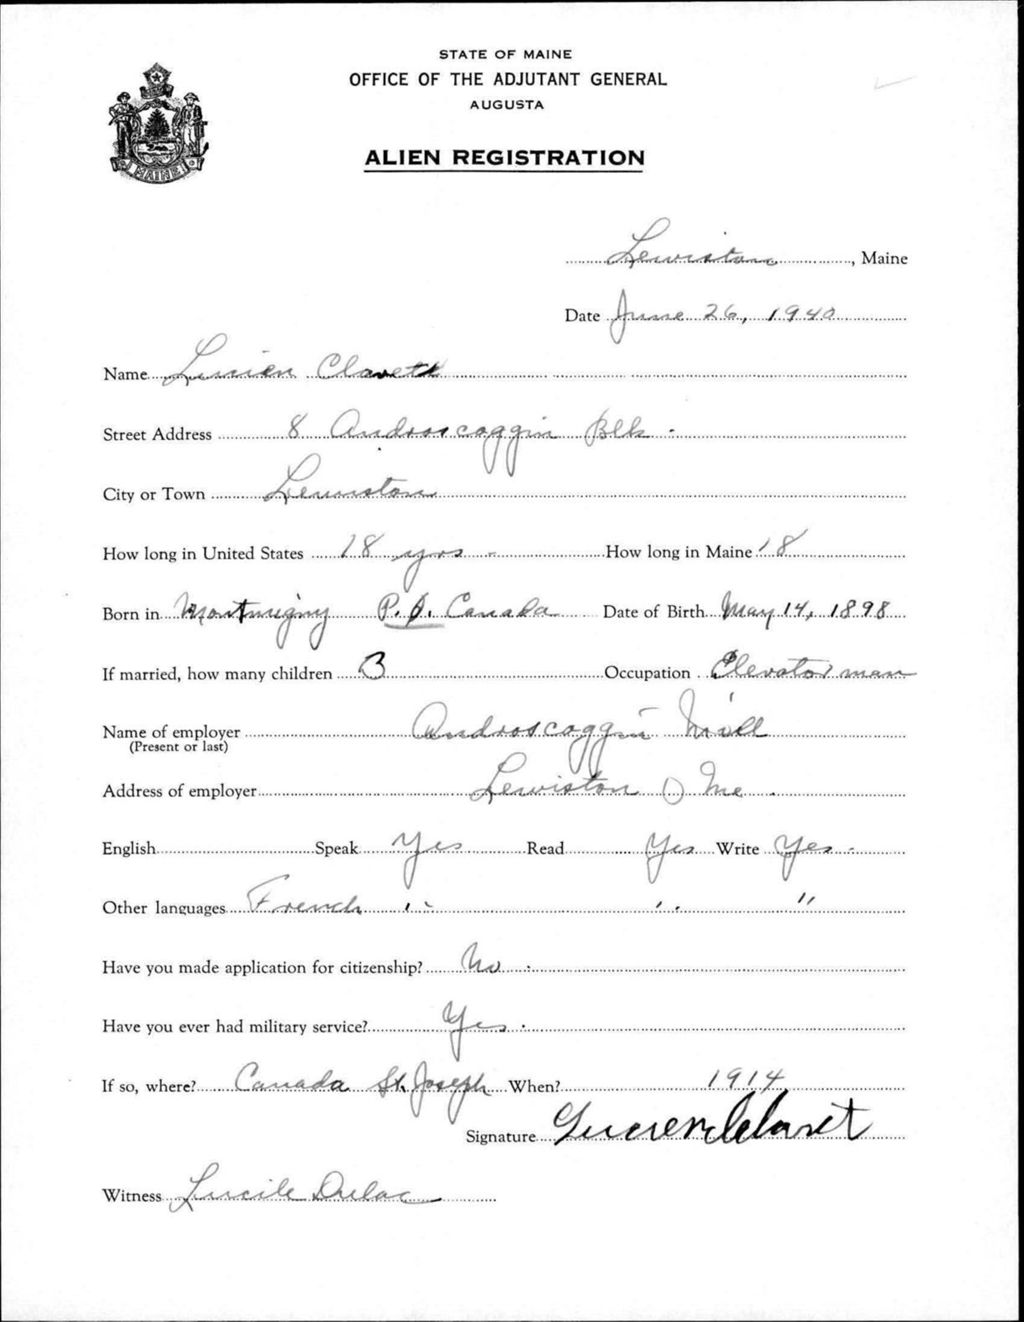 STATE OF MAINE
OFFICE OF THE ADJUTANT GENERAL
AUGUSTA
ALIEN REGISTRATION
MAINE
Lewiston, Maine
Date June 26, 1940
Name Lucien Clavet
Street Address 8 Androscoggin Blk
City or Town Lewiston
How long in United States 18 yrs - How long in Maine 18
Born in Montmigny P.Q. Canada Date of Birth May 14, 1898
If married, how many children 3 Occupation Elevator man
Name of employer Androscoggin Mill
(Present or last)
Address of employer Lewiston Me.
English Speak Yes Read Yes Write Yes
Other languages French " " "
Have you made application for citizenship? No
Have you ever had military service? Yes
If so, where? Canada St. Joseph When? 1914
Signature Lucien Clavet
Witness Lucile Dulac